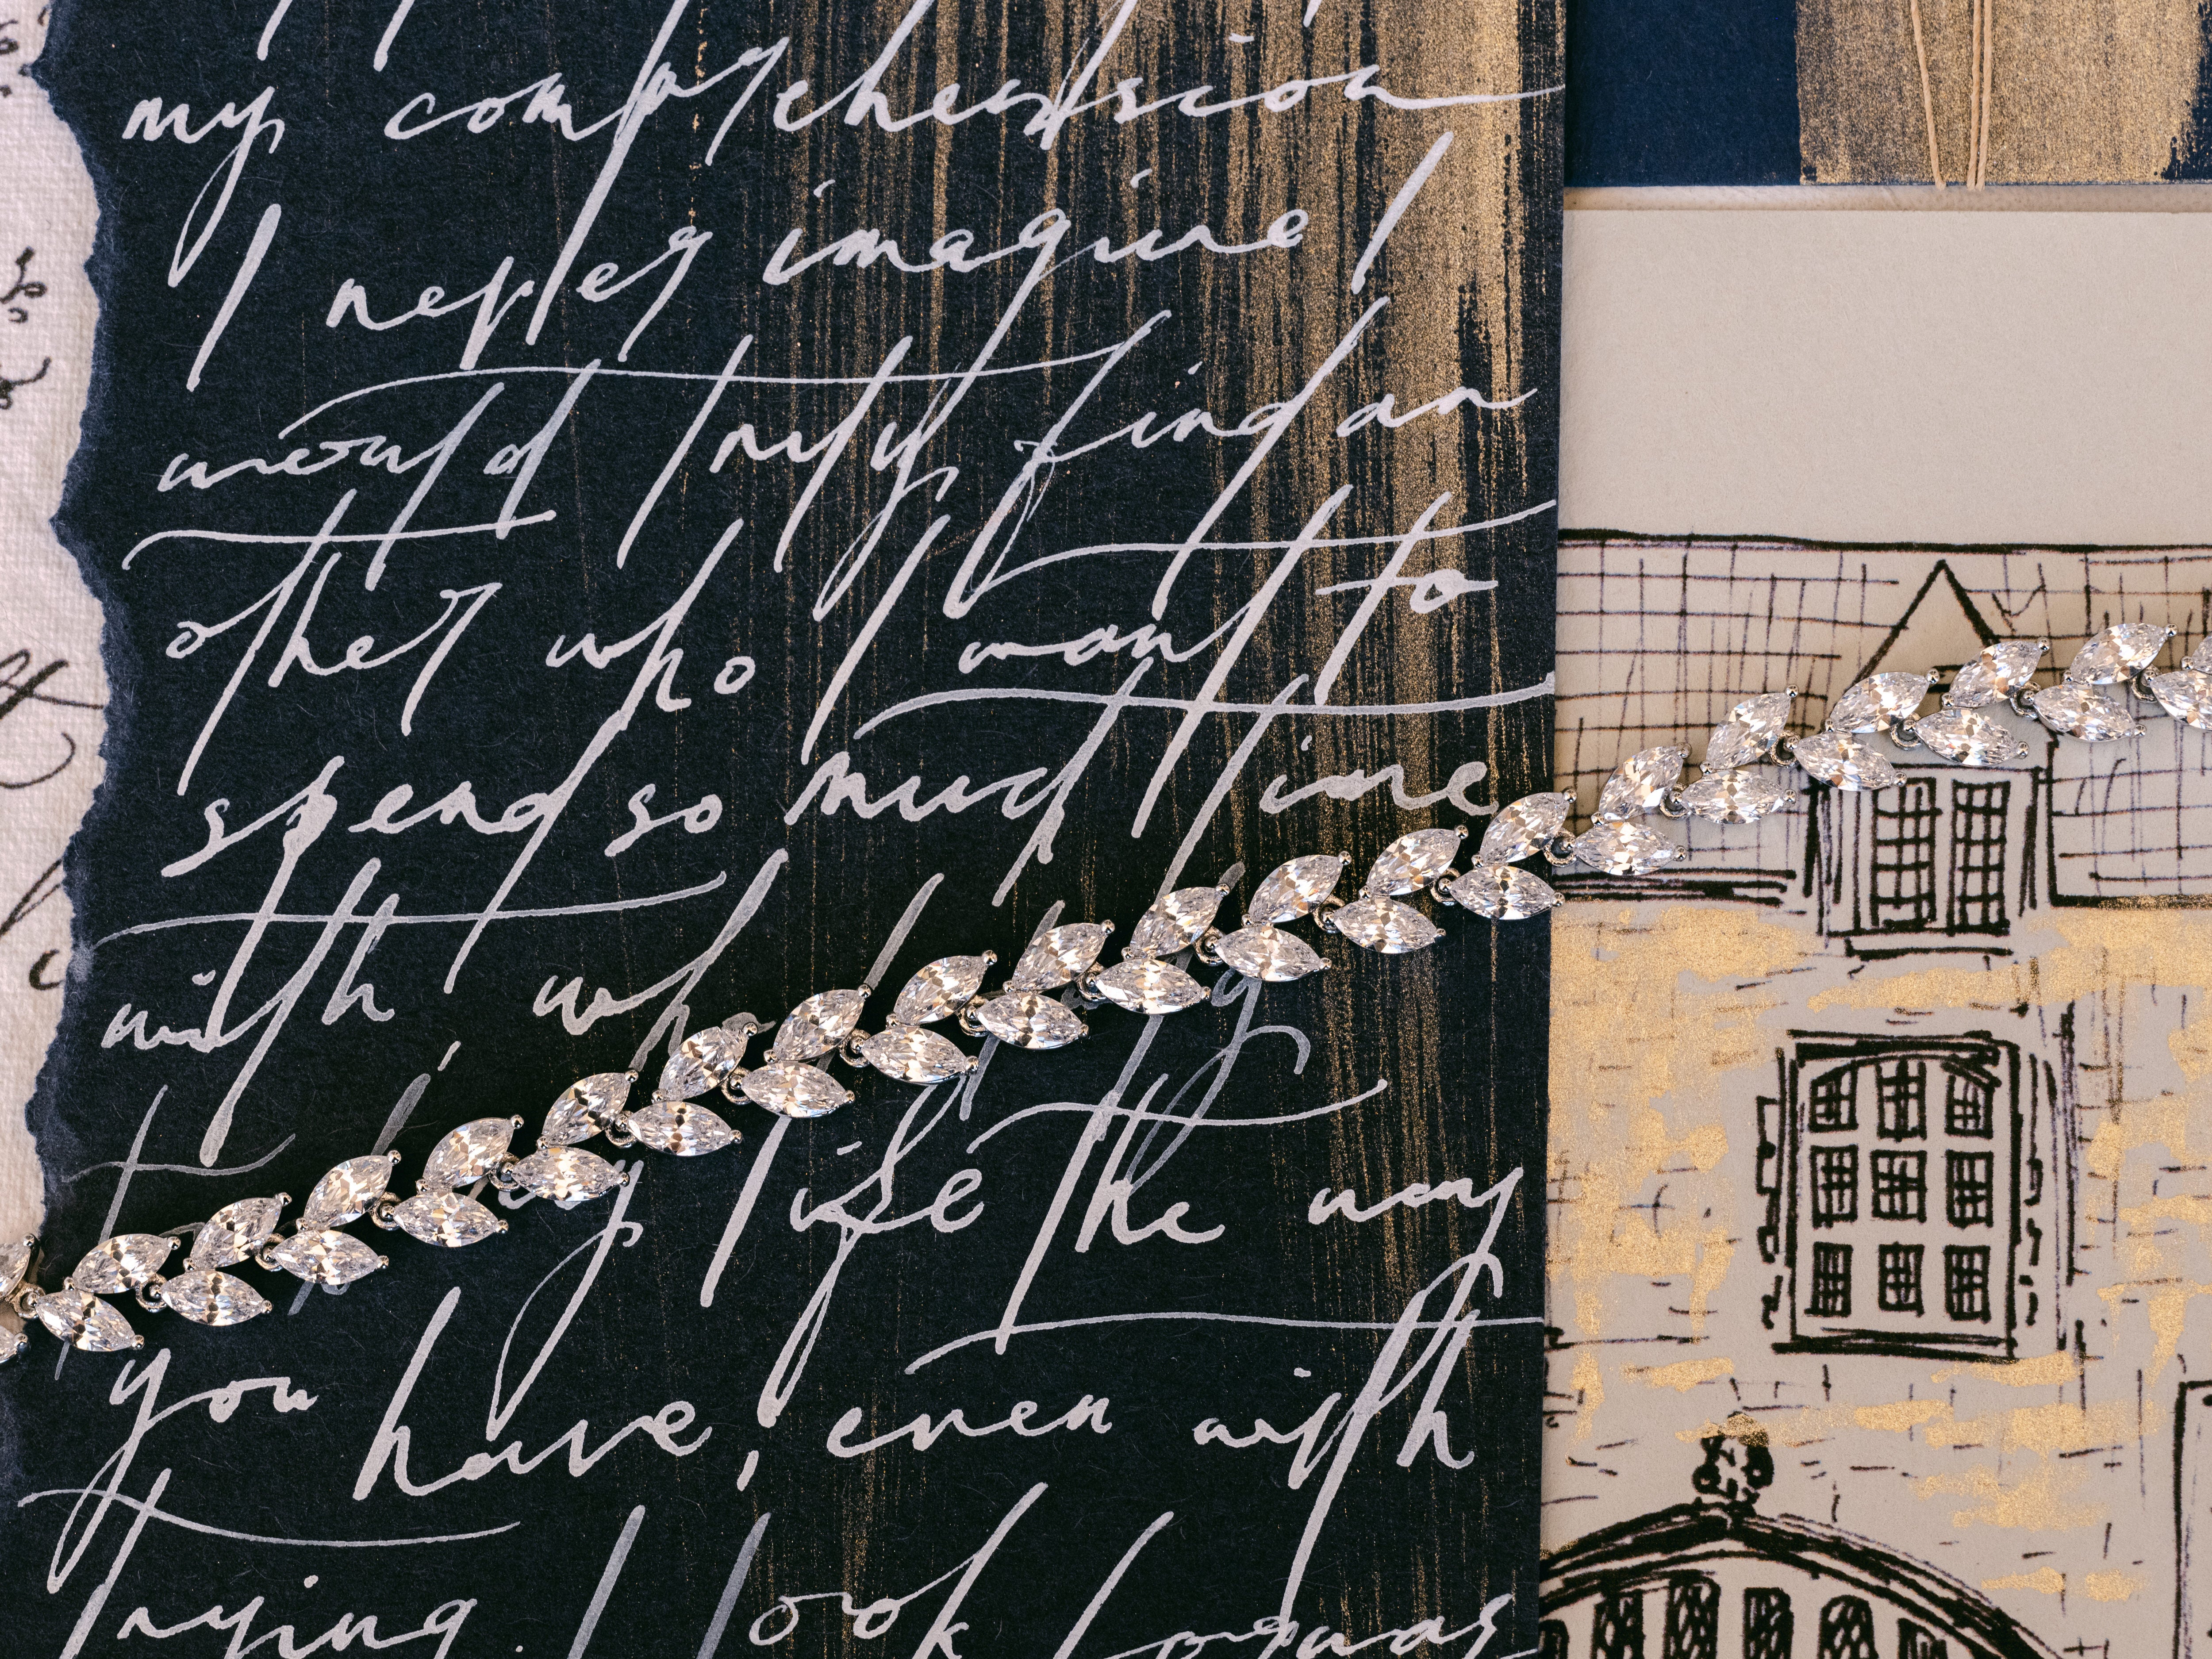 my comprehension
I never imagine I
would truly find an
other who I want to
spend so much time
with
life the way
you have, even with
trying. I look forward